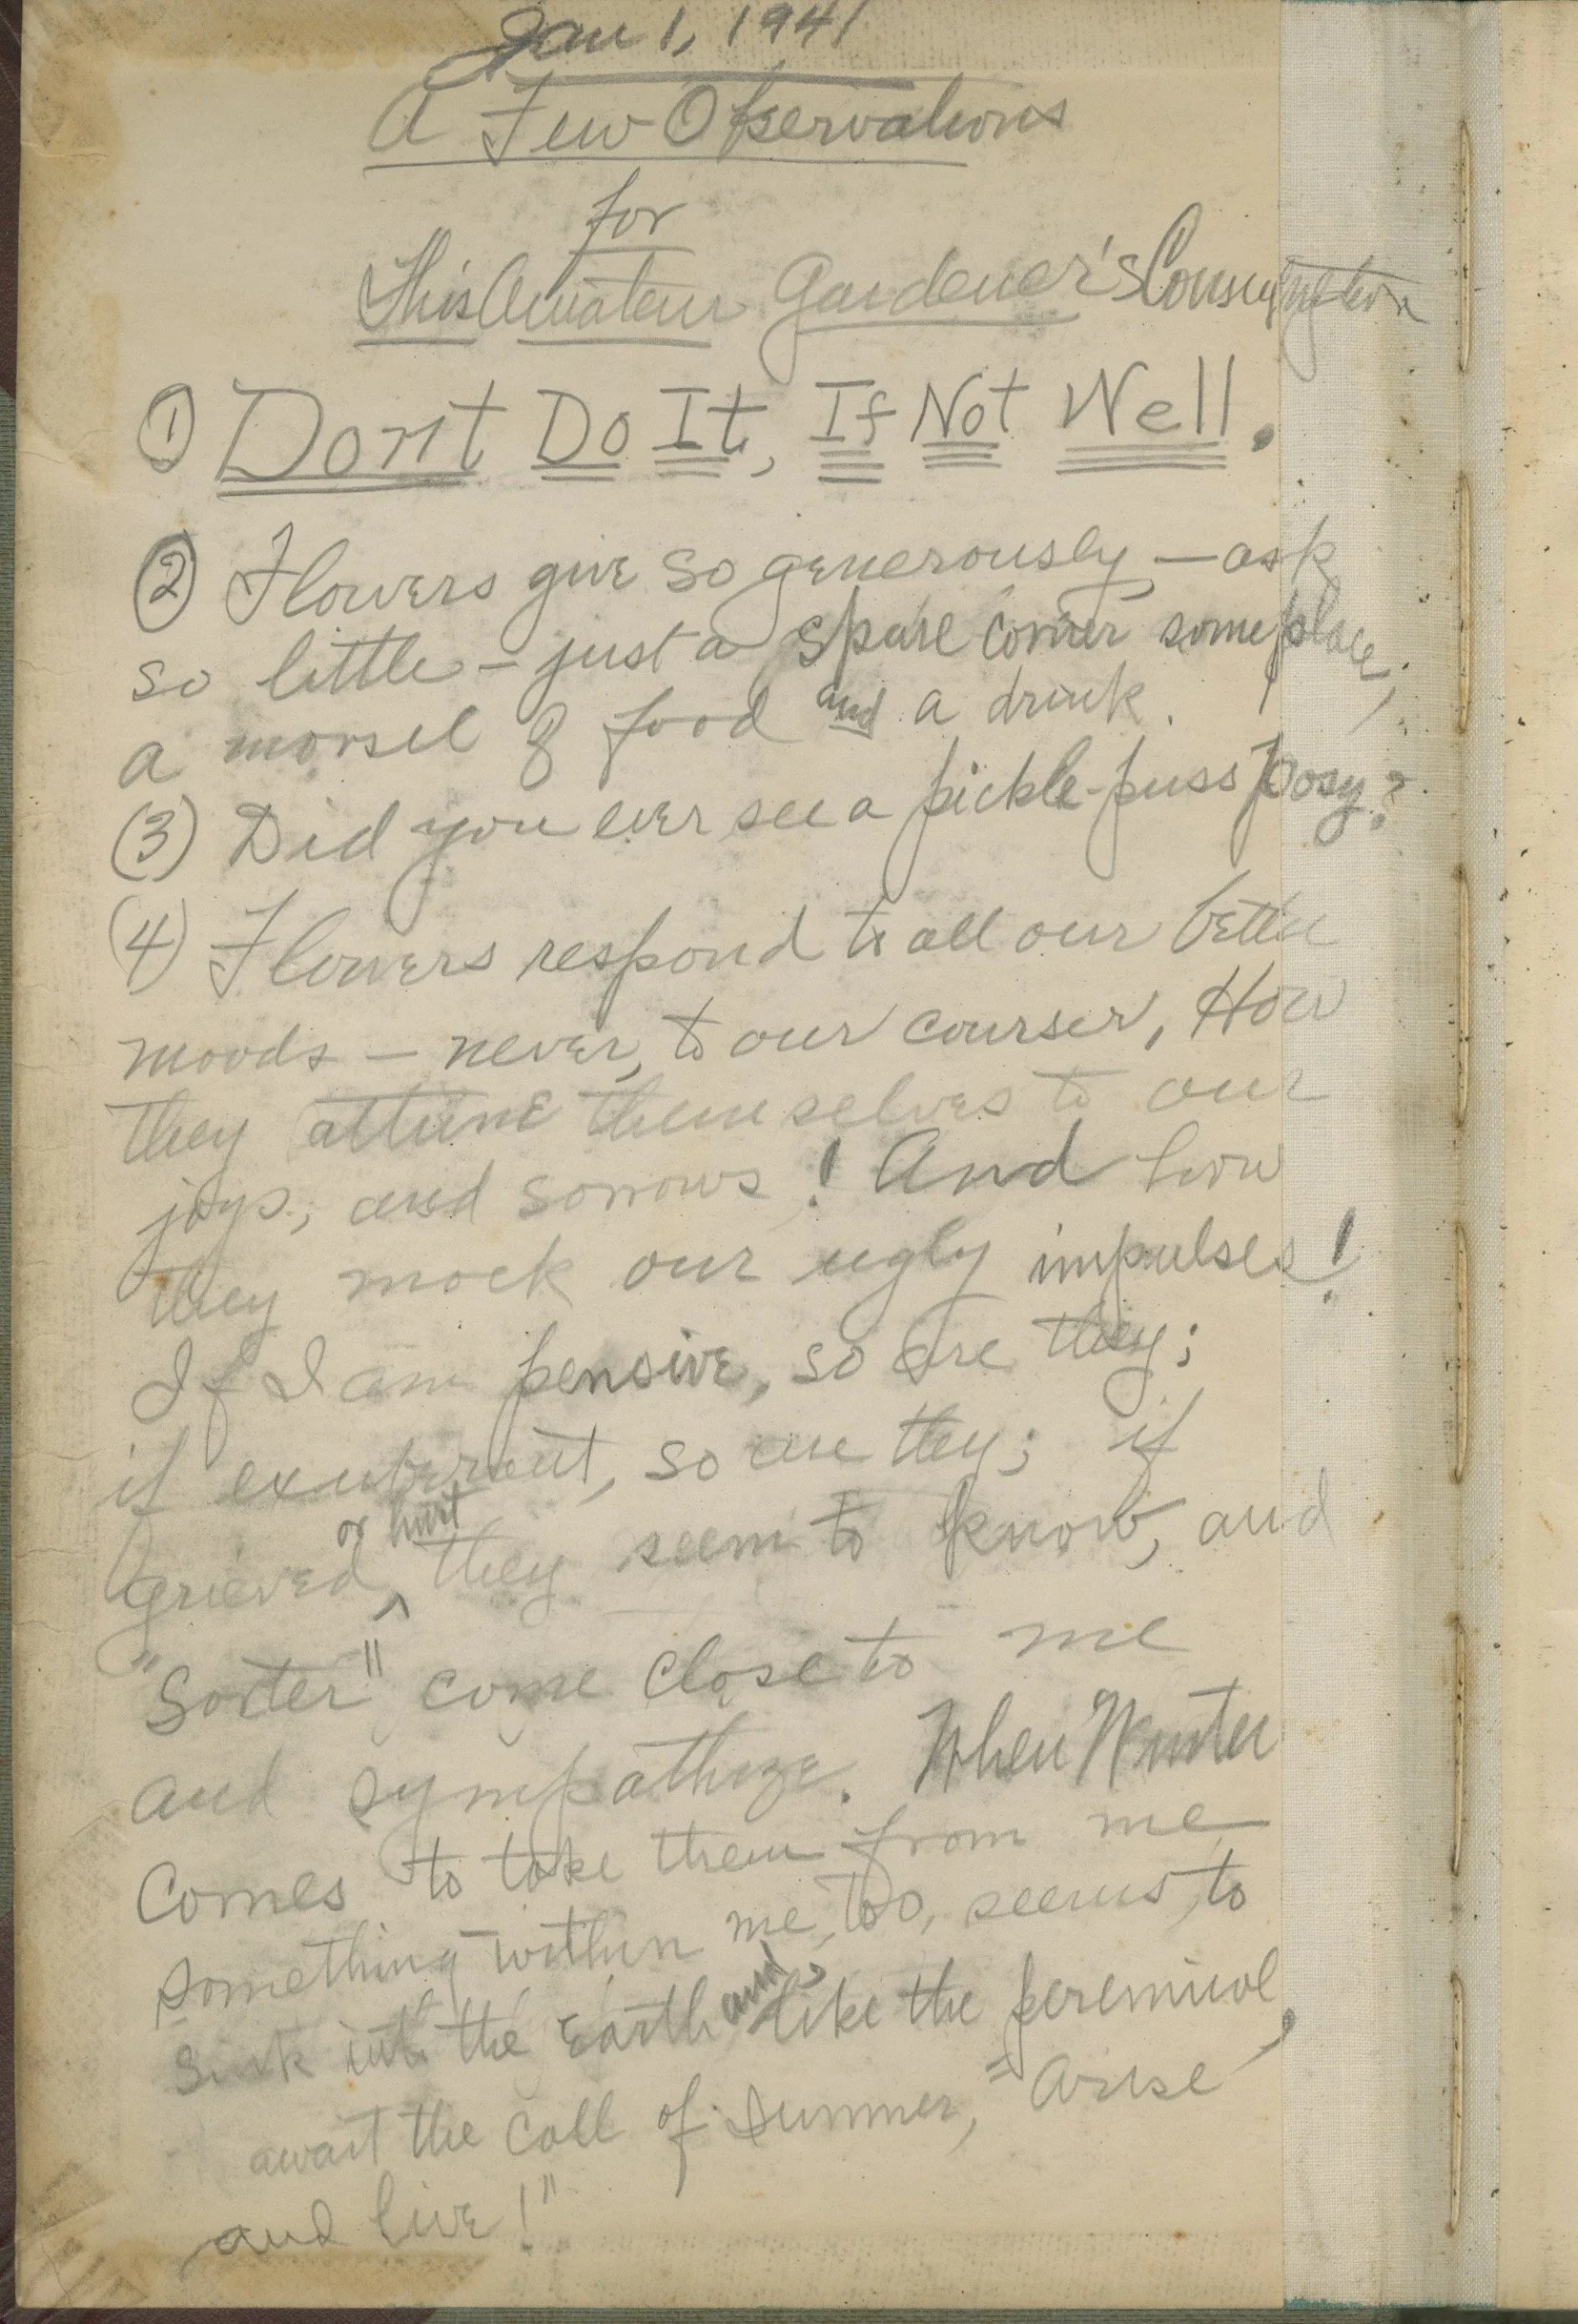 Jan 1, 1941
A Few Observations
for
This Amateur Gardener's Consumption
① Don't Do It, If Not Well.
② Flowers give so generously — ask
so little — just a spare corner some place,
a morsel of food and a drink.
(3) Did you ever see a pickle-puss posy?
(4) Flowers respond to all our better
moods — never, to our courser, How
they attune themselves to our
joys, and sorrows! And how
they mock our ugly impulses!
If I am pensive, so are they;
if exuberant, so are they; if
grieved or hurt they seem to know, and
"Sorter" come close to me
and sympathize. When Winter
Comes to take them from me
something within me, too, seems, to
sink into the Earth and, like the perennial,
await the call of summer, "Arise
and live!"